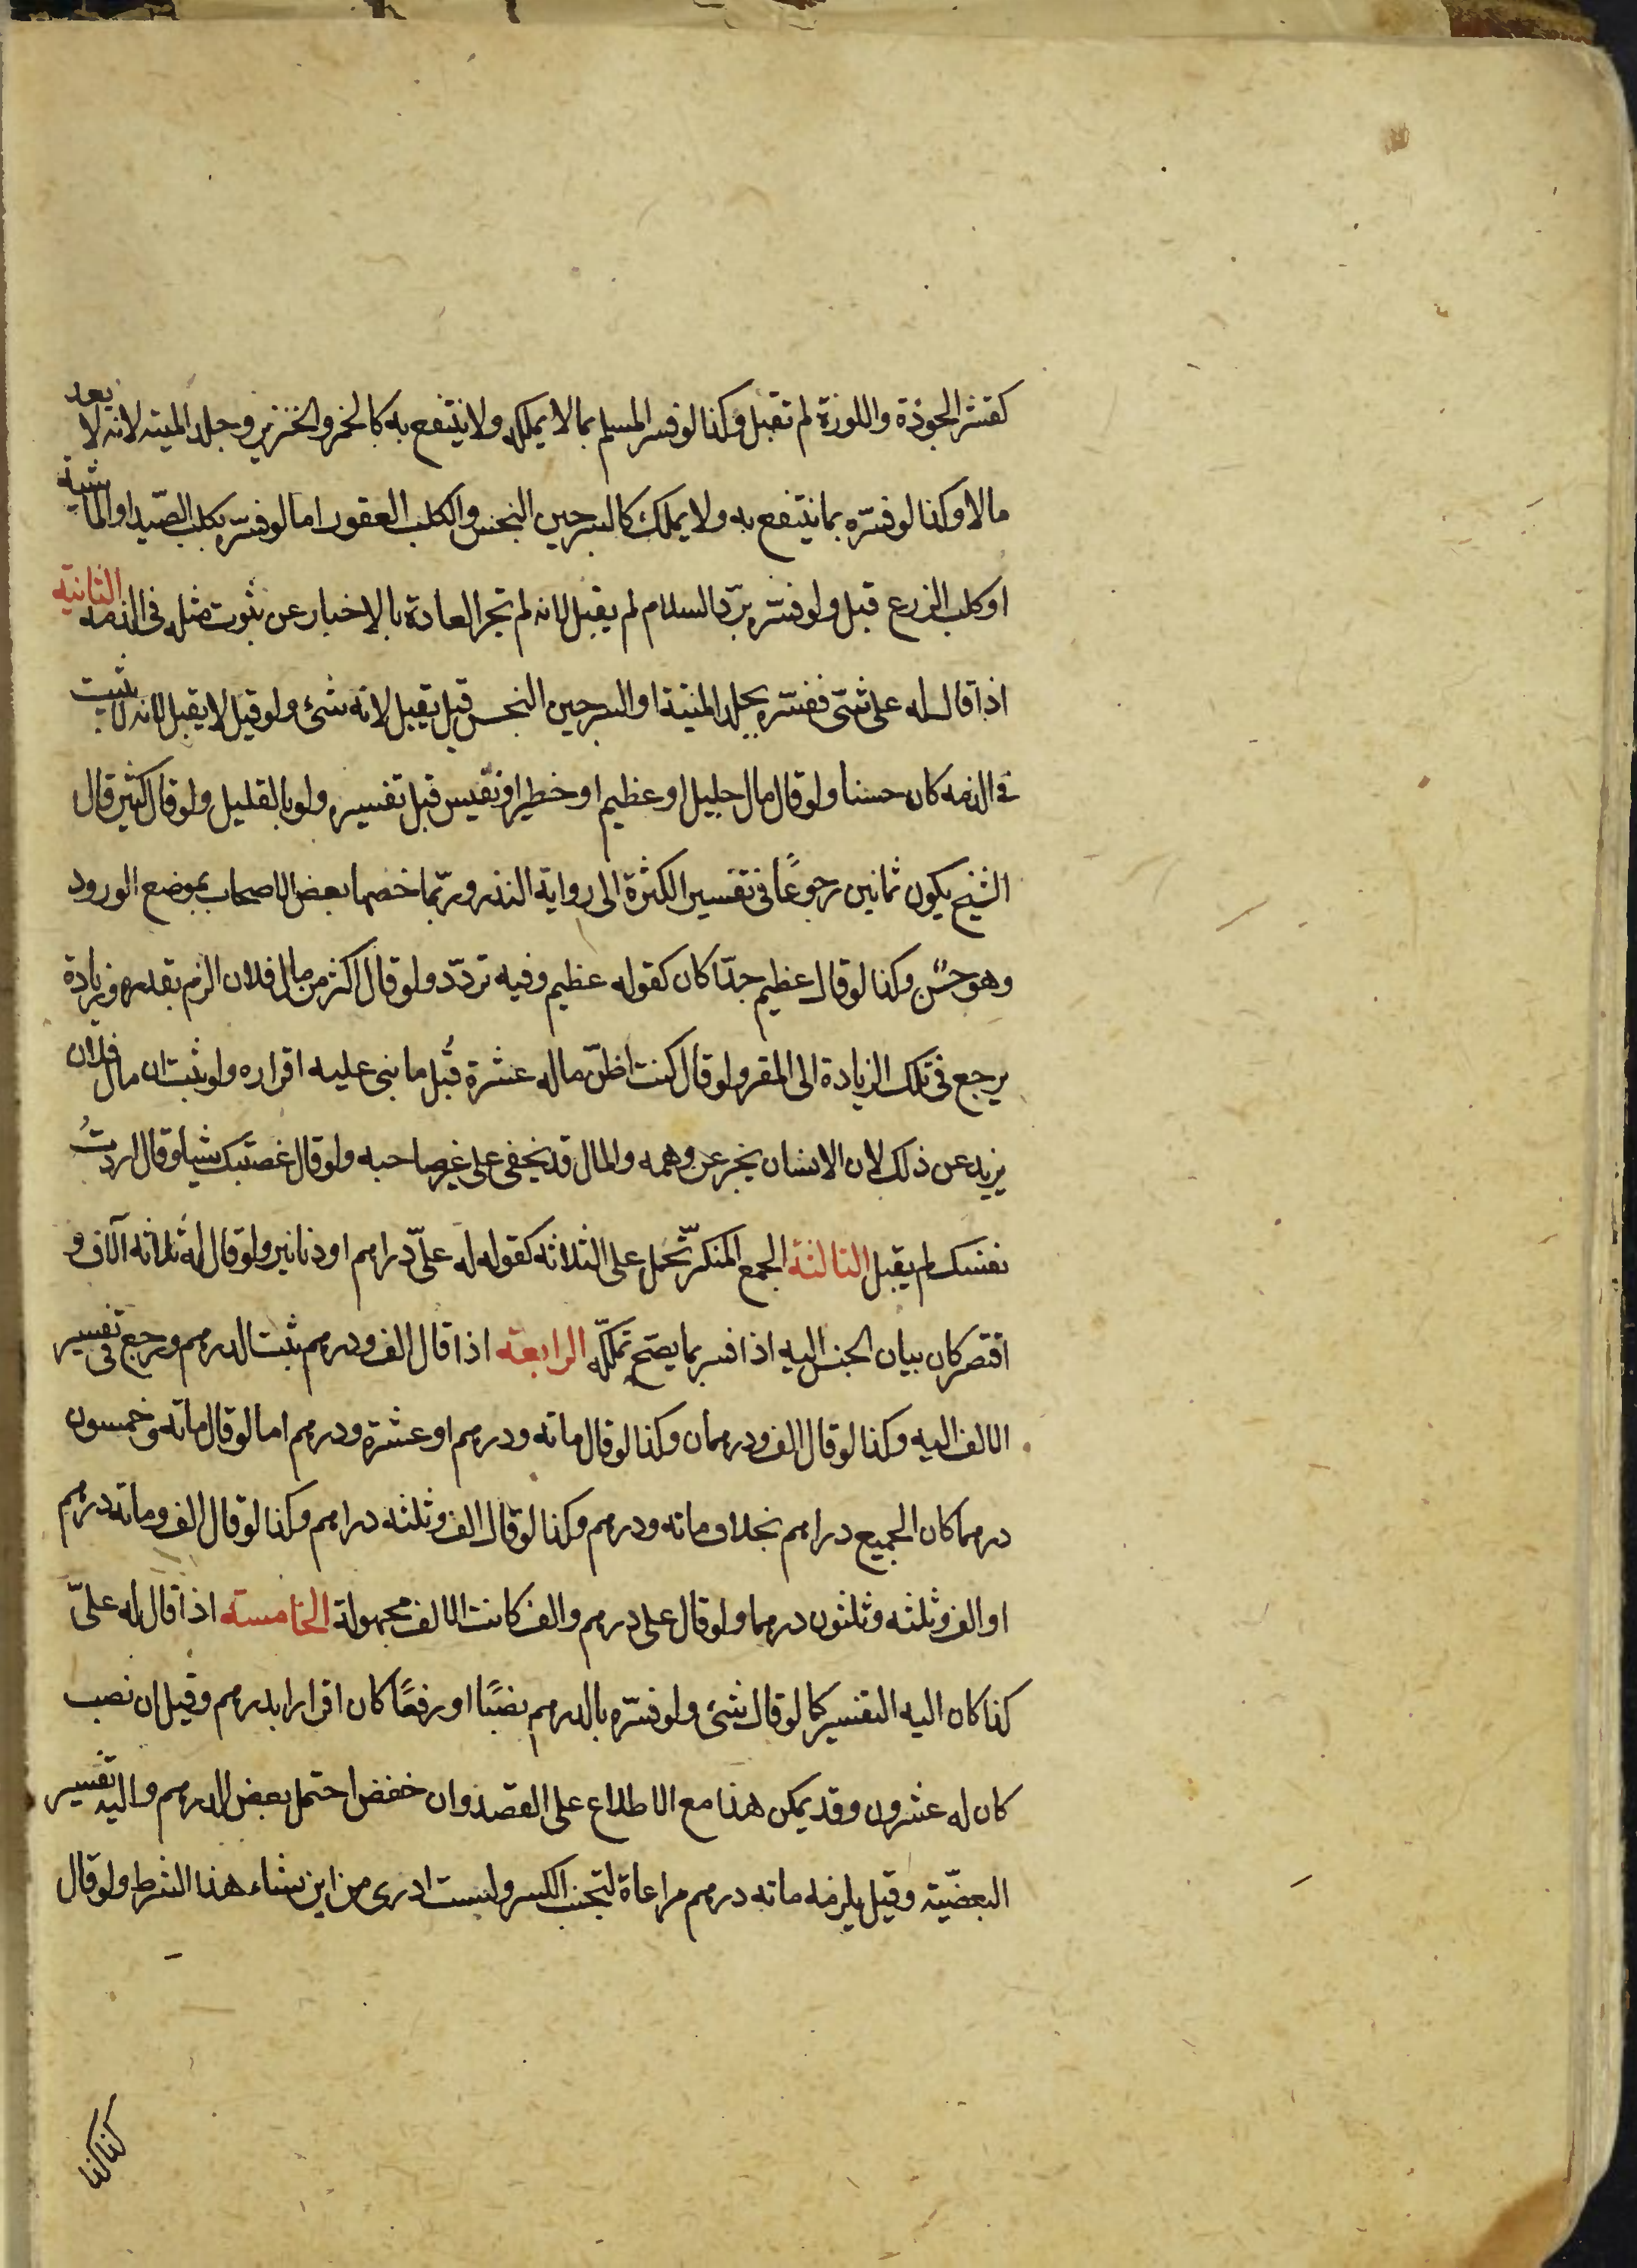 كقشر الجوزة واللوزة لم تقبل وكذا لو فسر المسلم بما لا يملكه ولا ينتفع به كالخمر والخنزير وجلد الميته لانه لا يعد
مالا وكذا لو فسّره بما ينتفع به ولا يملك كالسرجين النجس والكلب العقور اما لو فسّره بكلب الصّيد او الماشية
او كلب الزرع قبل ولو فسّره بردّ السلام لم يقبل لانه لم تجر العادة بالاخبار عن ثبوت مثله في الذمه الثانية
اذا قال له على شئ ففسّره بجلد الميتة او السرجين النجس قيل يقبل لانه شئ ولو قيل لا يقبل لانه لا يثبت
في الذمه كان حسنا ولو قال مال جليل او عظيم او خطير او نفيس قبل تفسيره ولو بالقليل ولو قال كثير قال
الشيخ يكون ثمانين رجوعًا في تفسير الكثرة الى رواية النذر وربّما خصها بعض الاصحاب بموضع الورود
وهو حسن وكذا لو قال عظيم جدّا كان كقوله عظيم وفيه تردّد ولو قال اكثر من مال فلان الزم بقدره وزيادة
يرجع في تلك الزيادة الى المقر ولو قال كنت اظنّ ماله عشرة قُبل ما بنى عليه اقراره ولو ثبت ان مال فلان
يزيد عن ذلك لان الانسان يخبر عن وهمه والمال قد يخفى على غير صاحبه ولو قال غصبتك شيئا وقال اردتُ
نفسك لم يقبل الثالثة الجمع المنكر يحمل على الثلاثه كقوله له علىّ دراهم او دنانير ولو قال له ثلاثه آلاف و
اقتصر كان بيان الجنس اليه اذا فسر بما يصح تملكه الرابعة اذا قال الف ودرهم ثبت الدرهم ورجع في تفسير
الالف اليه وكذا لو قال الف ودرهمان وكذا لو قال مائه ودرهم او عشرة ودرهم اما لو قال مائه وخمسون
درهما كان الجميع دراهم بخلاف مائه ودرهم وكذا لو قال الف وثلثه دراهم وكذا لو قال الف ومائه درهم
او الف وثلثه وثلثون درهما ولو قال على درهم والف كانت الالف مجهولة الخامسة اذا قال له علىّ
كذا كان اليه التفسير كما لو قال شئ ولو فسّره بالدرهم نصبًا او رفعًا كان اقرارا بدرهم وقيل ان نصب
كان له عشرون وقد يمكن هذا مع الاطلاع على القصد وان خفض احتمل بعض الدرهم واليه تفسير
البعضيّة وقيل يلزمه مائه درهم مراعاة لتجنب الكسر ولست ادرى من اين نشاء هذا الشرط ولو قال
كذا كذا